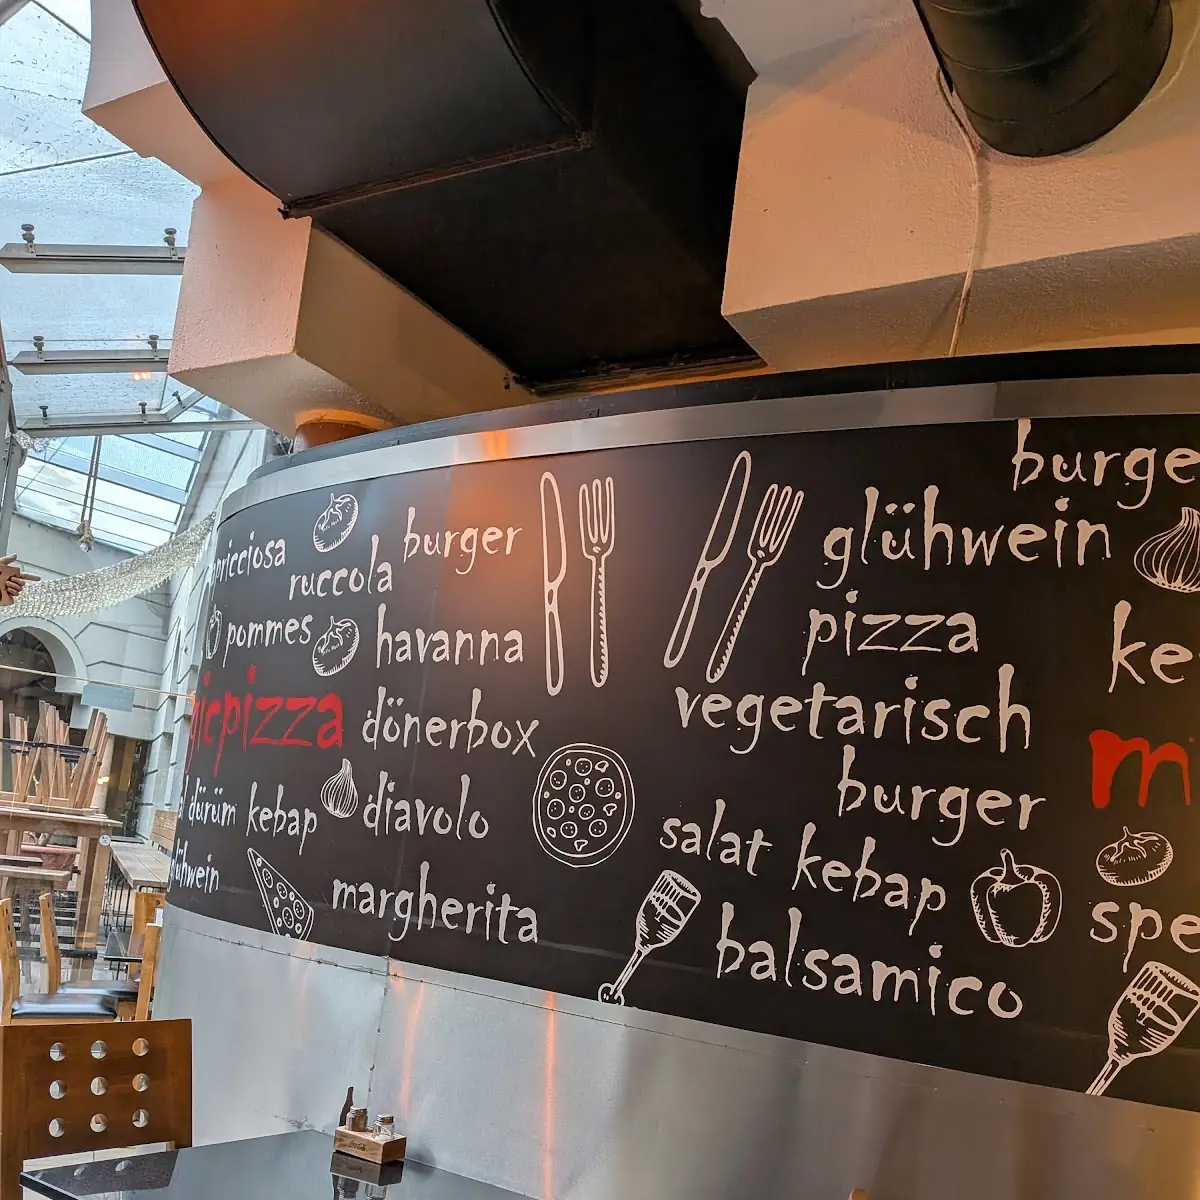 pricciosa
ruccola
burger
pommes
havanna
gicpizza
dönerbox
dürüm kebap
diavolo
ühwein
margherita
burge
glühwein
pizza
ke
vegetarisch
m
burger
salat kebap
spe
balsamico